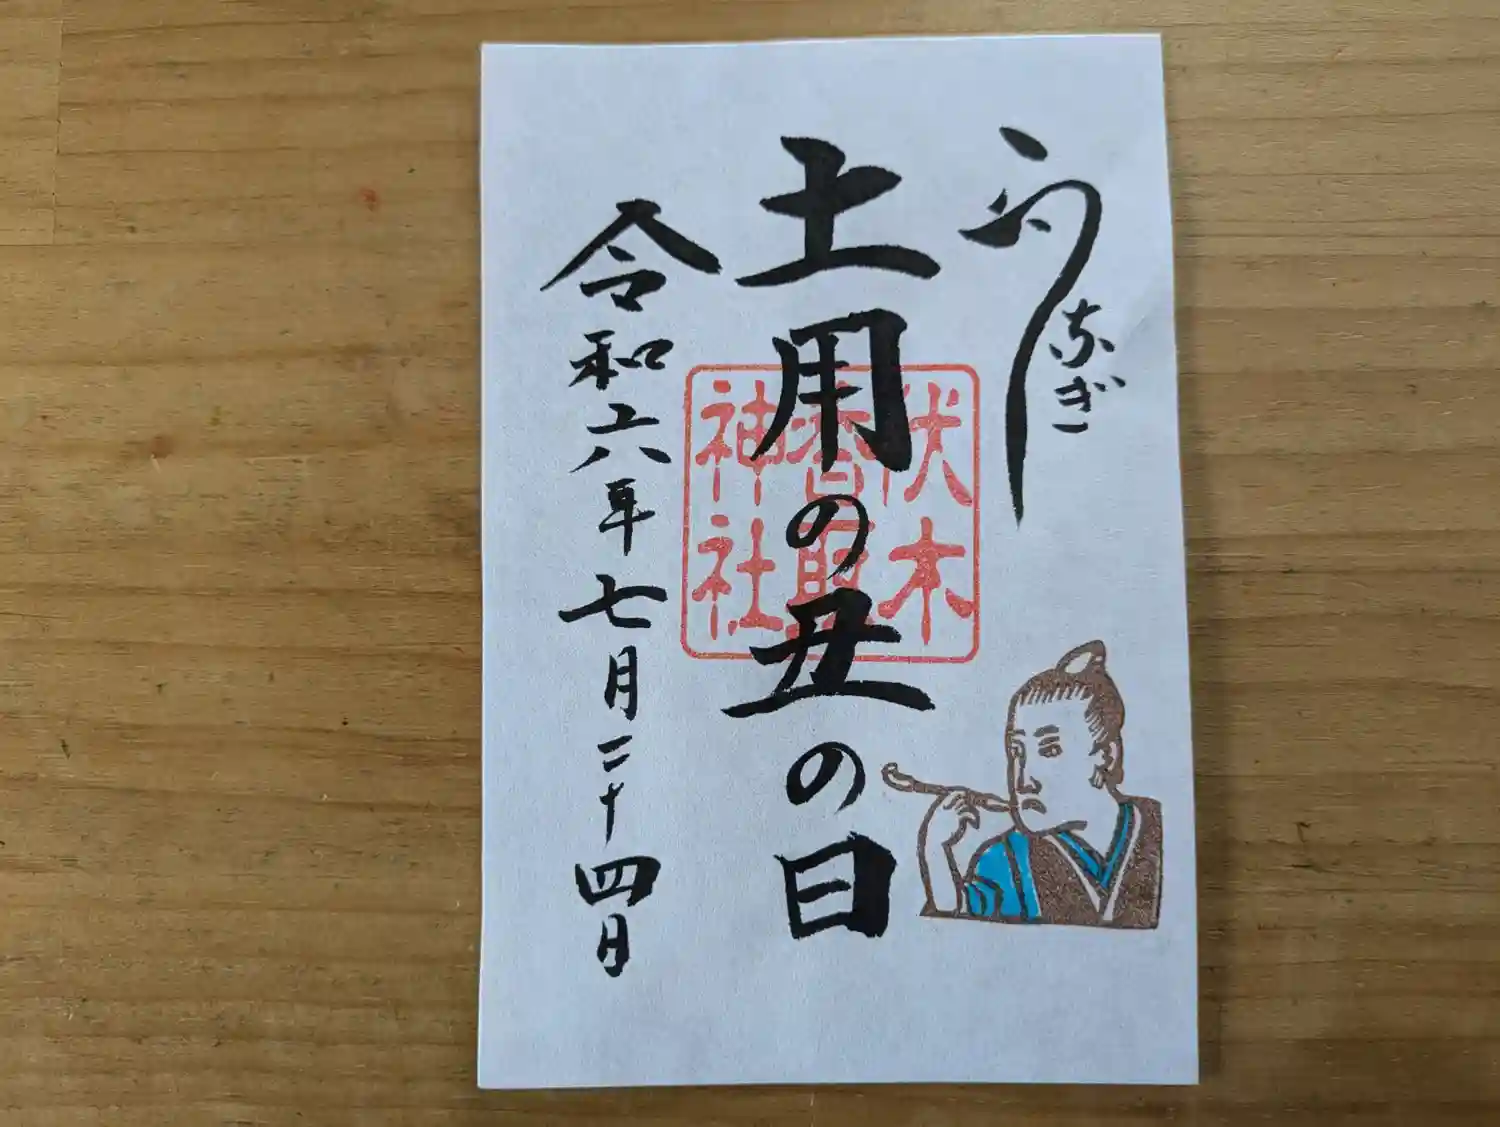 うなぎ
土用の丑の日
令和六年七月二十四日
伏木
香取
神社